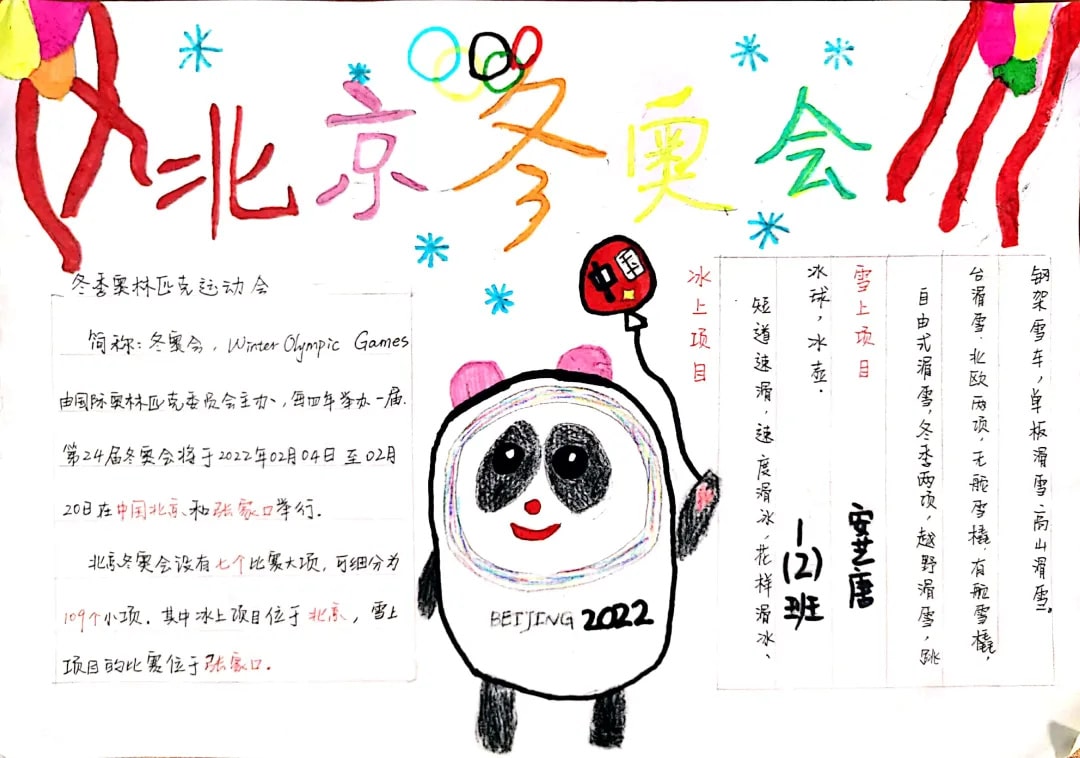 北京冬奥会
冬季奥林匹克运动会
简称：冬奥会，Winter Olympic Games
由国际奥林匹克委员会主办，每四年举办一届.
第24届冬奥会将于2022年02月04日至02月
20日在中国北京和张家口举行.
北京冬奥会设有七个比赛大项，可细分为
109个小项. 其中冰上项目位于北京，雪上
项目的比赛位于张家口.
中国
BEIJING 2022
冰上项目
短道速滑，速度滑冰，花样滑冰、
冰球，冰壶.
雪上项目
自由式滑雪，冬季两项，越野滑雪，跳
台滑雪.北欧两项，无舵雪橇.有舵雪橇，
钢架雪车，单板滑雪 高山滑雪。
1(2)班
安芝唐